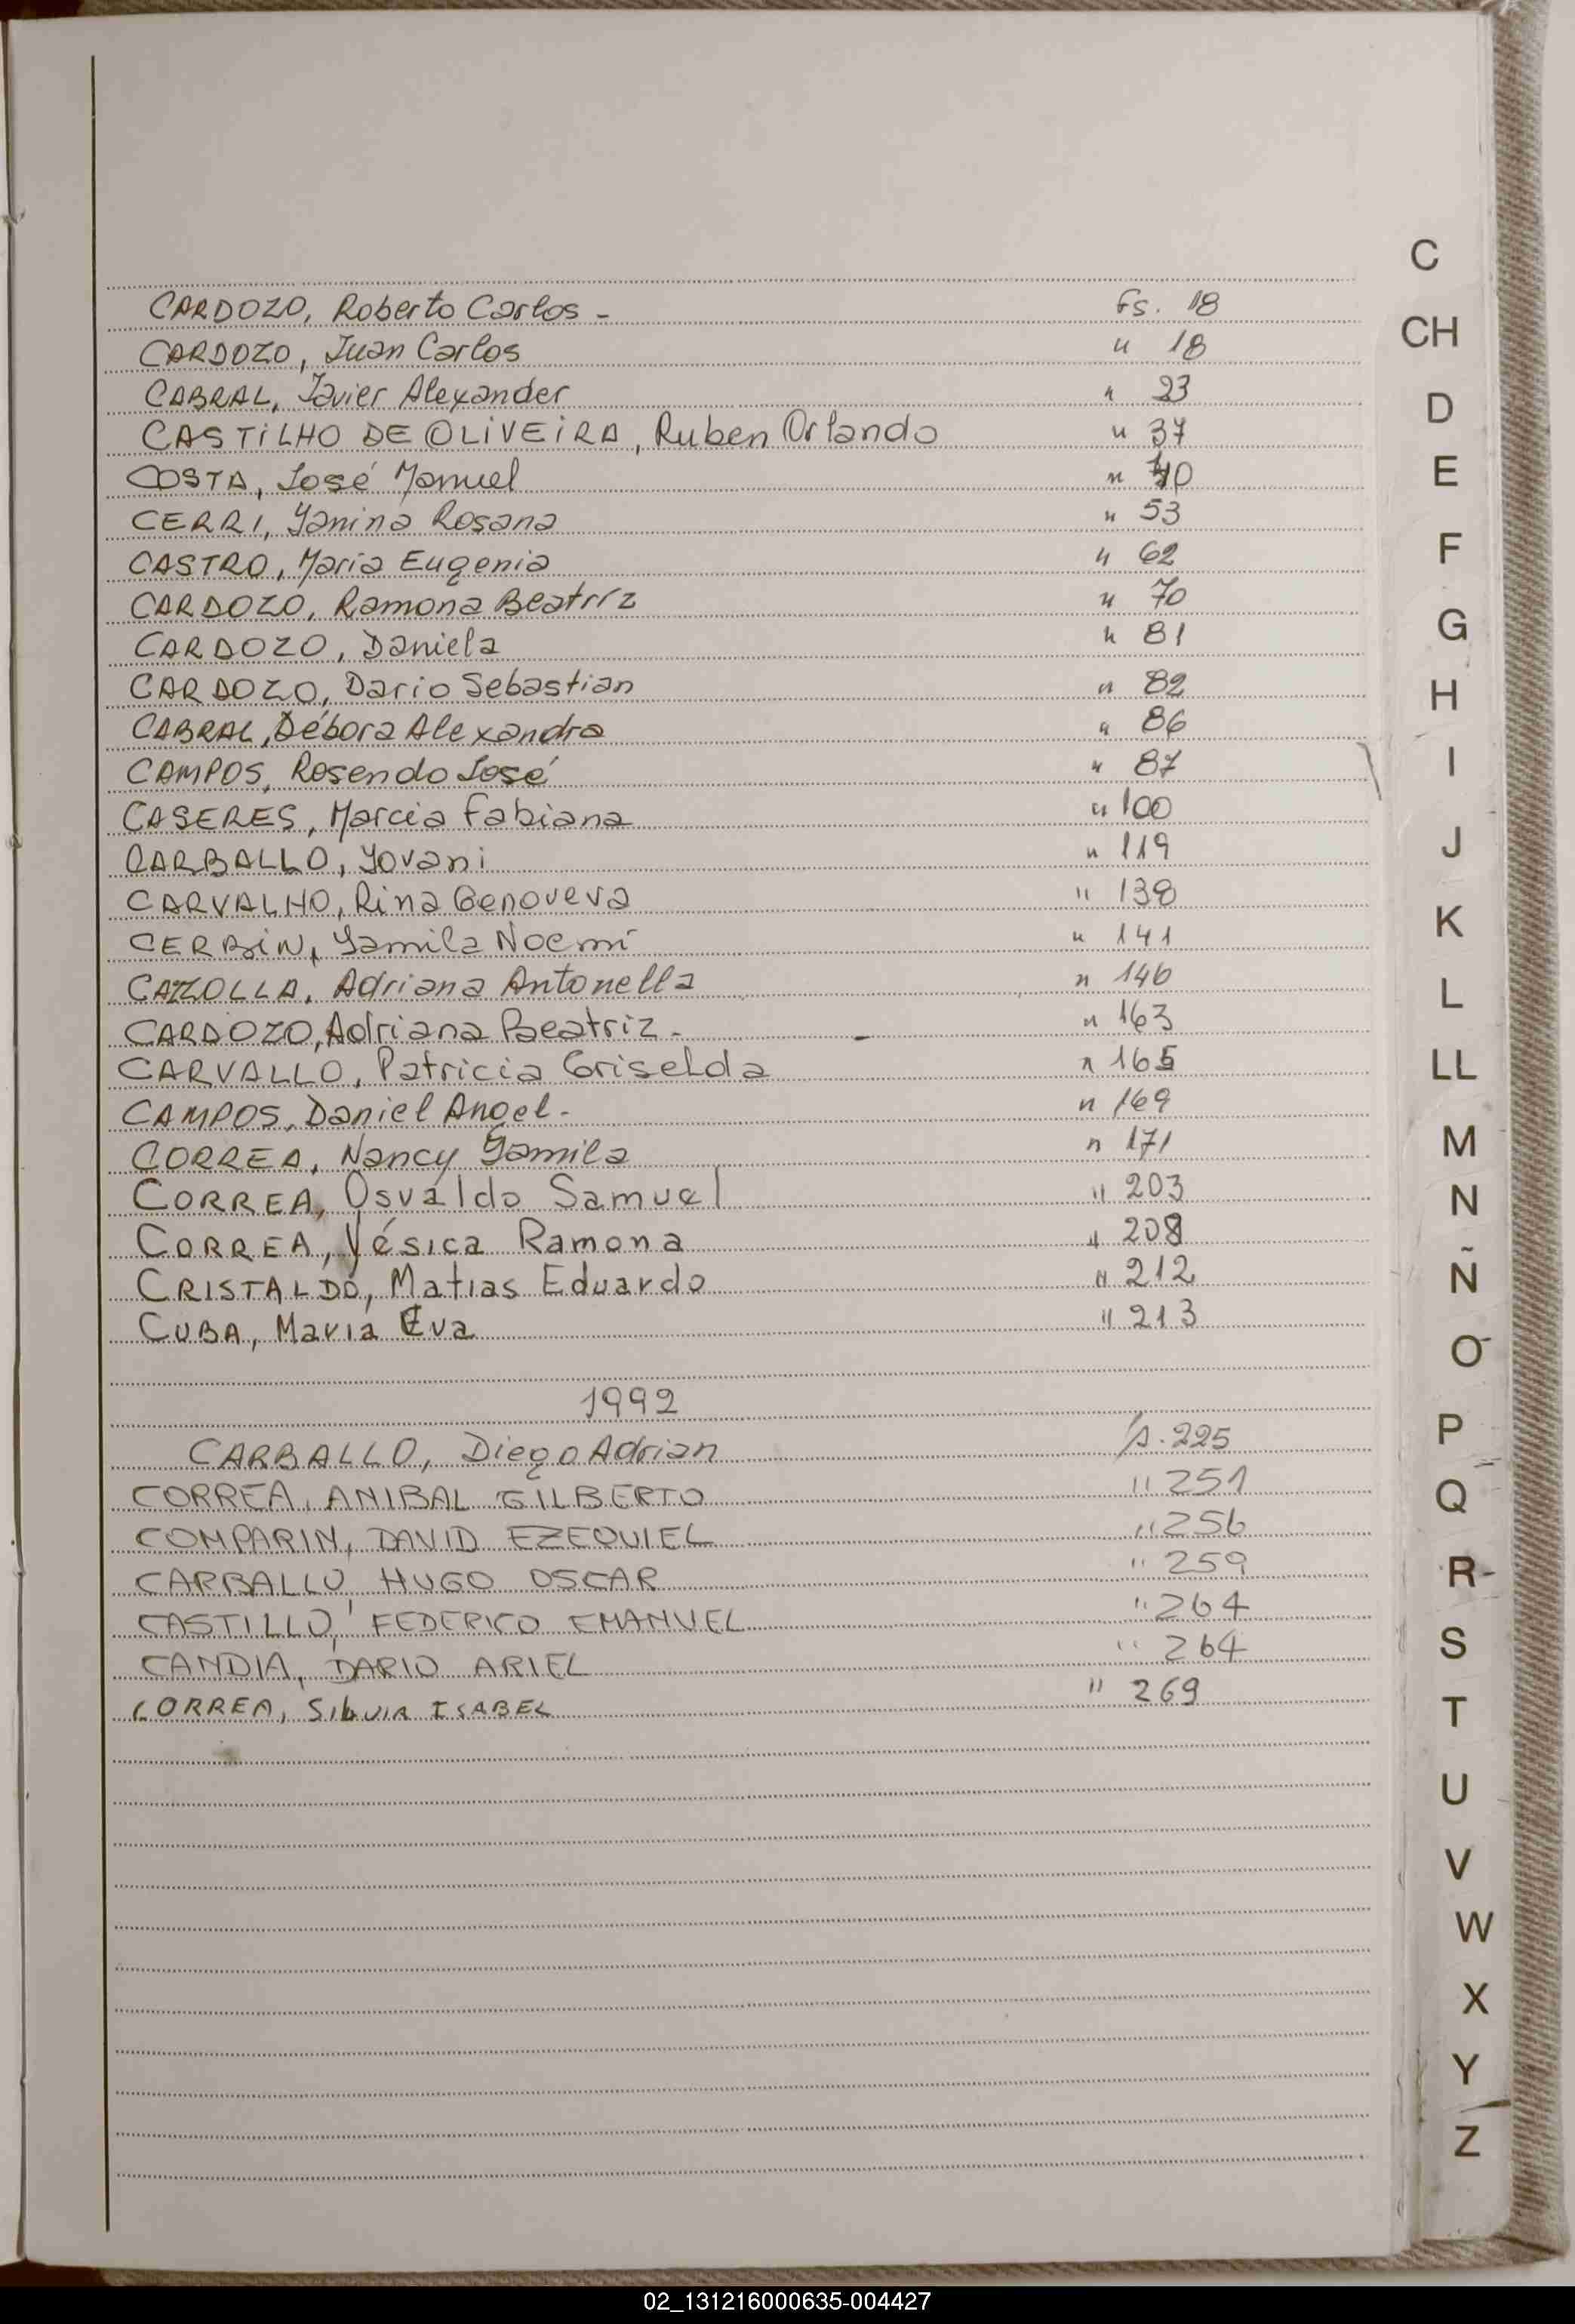 CARDOZO, Roberto Carlos - Fs. 18
CARDOZO, Juan Carlos " 18
CABRAL, Javier Alexander " 23
CASTiLHO DE OLiVEiRA, Ruben Orlando " 37
COSTA, José Manuel " 40
CERRI, Yanina Rosana " 53
CASTRO, Maria Eugenia " 62
CARDOZO, Ramona Beatríz " 70
CARDOZO, Daniela " 81
CARDOZO, Dario Sebastian " 82
CABRAL, Débora Alexandra " 86
CAMPOS, Rosendo José " 87
CASERES, Marcia Fabiana " 100
CARBALLO, Yovani " 119
CARVALHO, Rina Genoveva " 138
CERBiN, Yamila Noemí " 141
CAZZOLLA, Adriana Antonella " 146
CARDOZO, Adriana Beatriz - " 163
CARVALLO, Patricia Griselda " 165
CAMPOS, Daniel Angel - " 169
CORREA, Nancy Yamila " 171
CORREA, Osvaldo Samuel " 203
CORREA, Yésica Ramona " 208
CRISTALDO, Matias Eduardo " 212
CUBA, Maria Eva " 213
1992
CARBALLO, Diego Adrian fs. 225
CORREA, ANIBAL GILBERTO " 251
COMPARIN, DAVID EZEQUIEL " 256
CARBALLO, HUGO OSCAR " 259
CASTILLO, FEDERICO EMANUEL " 264
CANDIA, DARIO ARIEL " 264
CORREA, SILVIA ISABEL " 269
C
CH
D
E
F
G
H
I
J
K
L
LL
M
N
Ñ
O
P
Q
R
S
T
U
V
W
X
Y
Z
02_131216000635-004427